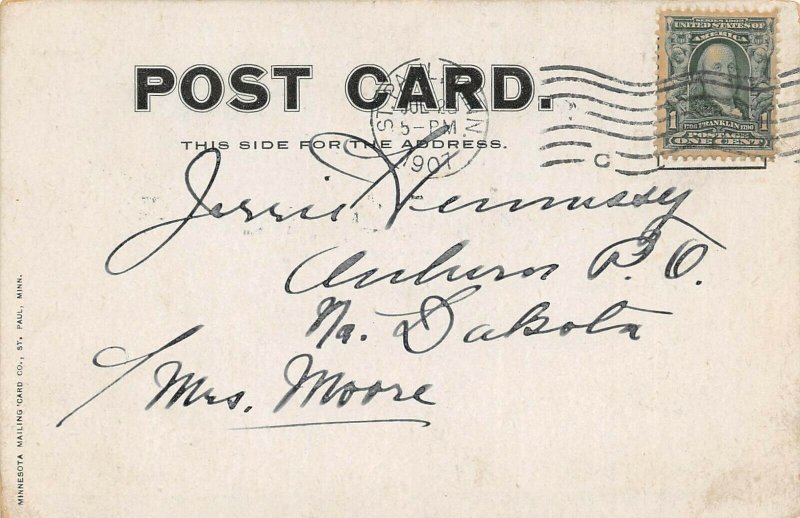 POST CARD.
THIS SIDE FOR THE ADDRESS.
ST. PAUL MINN
JUL 2
5-PM
1907
C
SERIES 1902
UNITED STATES OF
AMERICA
1 1
1706 FRANKLIN 1790
POSTAGE
ONE CENT
Jessie Hennessy
Auburn P.O.
No. Dakota
Mrs. Moore
MINNESOTA MAILING CARD CO., ST. PAUL, MINN.